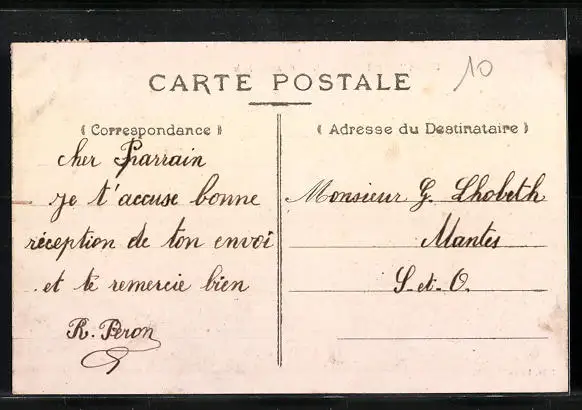 CARTE POSTALE
10
( Correspondance )
cher Parrain
je t'accuse bonne
réception de ton envoi
et te remercie bien
R. Peron
( Adresse du Destinataire )
Monsieur G. Lhobeth
Mantes
S-et-O.